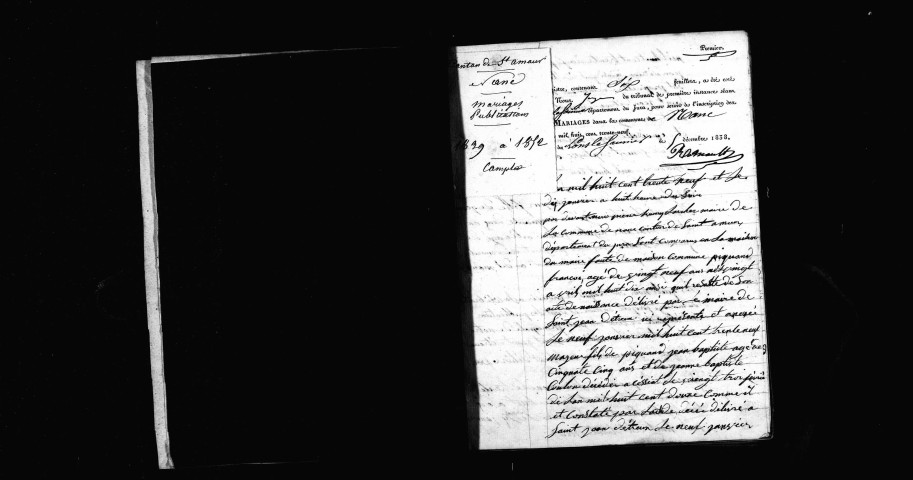 canton de St amour
Nanc
mariages
Publications
1839 à 1852
Complet
Premier
istre, contenant Six feuillets, a été coté
Nous, du tribunal de première instance séant
département du Jura, pour servir de l'inscription des
MARIAGES dans la commune de Nanc
mil huit cent trente-neuf.
Lons le Saunier le décembre 1838.
mil huit cent trente neuf et le
dix janvier a huit heures du Soir
par devant nous maire de
La commune de nanc canton de Saint amour
département du jura Sont comparus en La maison
du maire faute de maison commune piquand
francois agé de vingt neuf ans né vingt
avril mil huit dix ainsi quil resulte de Son
acte de naissance délivré par le maire de
Saint jean détreux ici représenté et annexé
Le neuf janvier mil huit cent trente neuf
majeur fils de piquand jean baptiste agé de
Cinquante Cinq ans et de jeanne baptiste
décédée a Le vingt trois février
de Lan mil huit cent douze Comme il
et Constaté par Lacte décès délivré a
Saint jean détreux Le neuf janvier